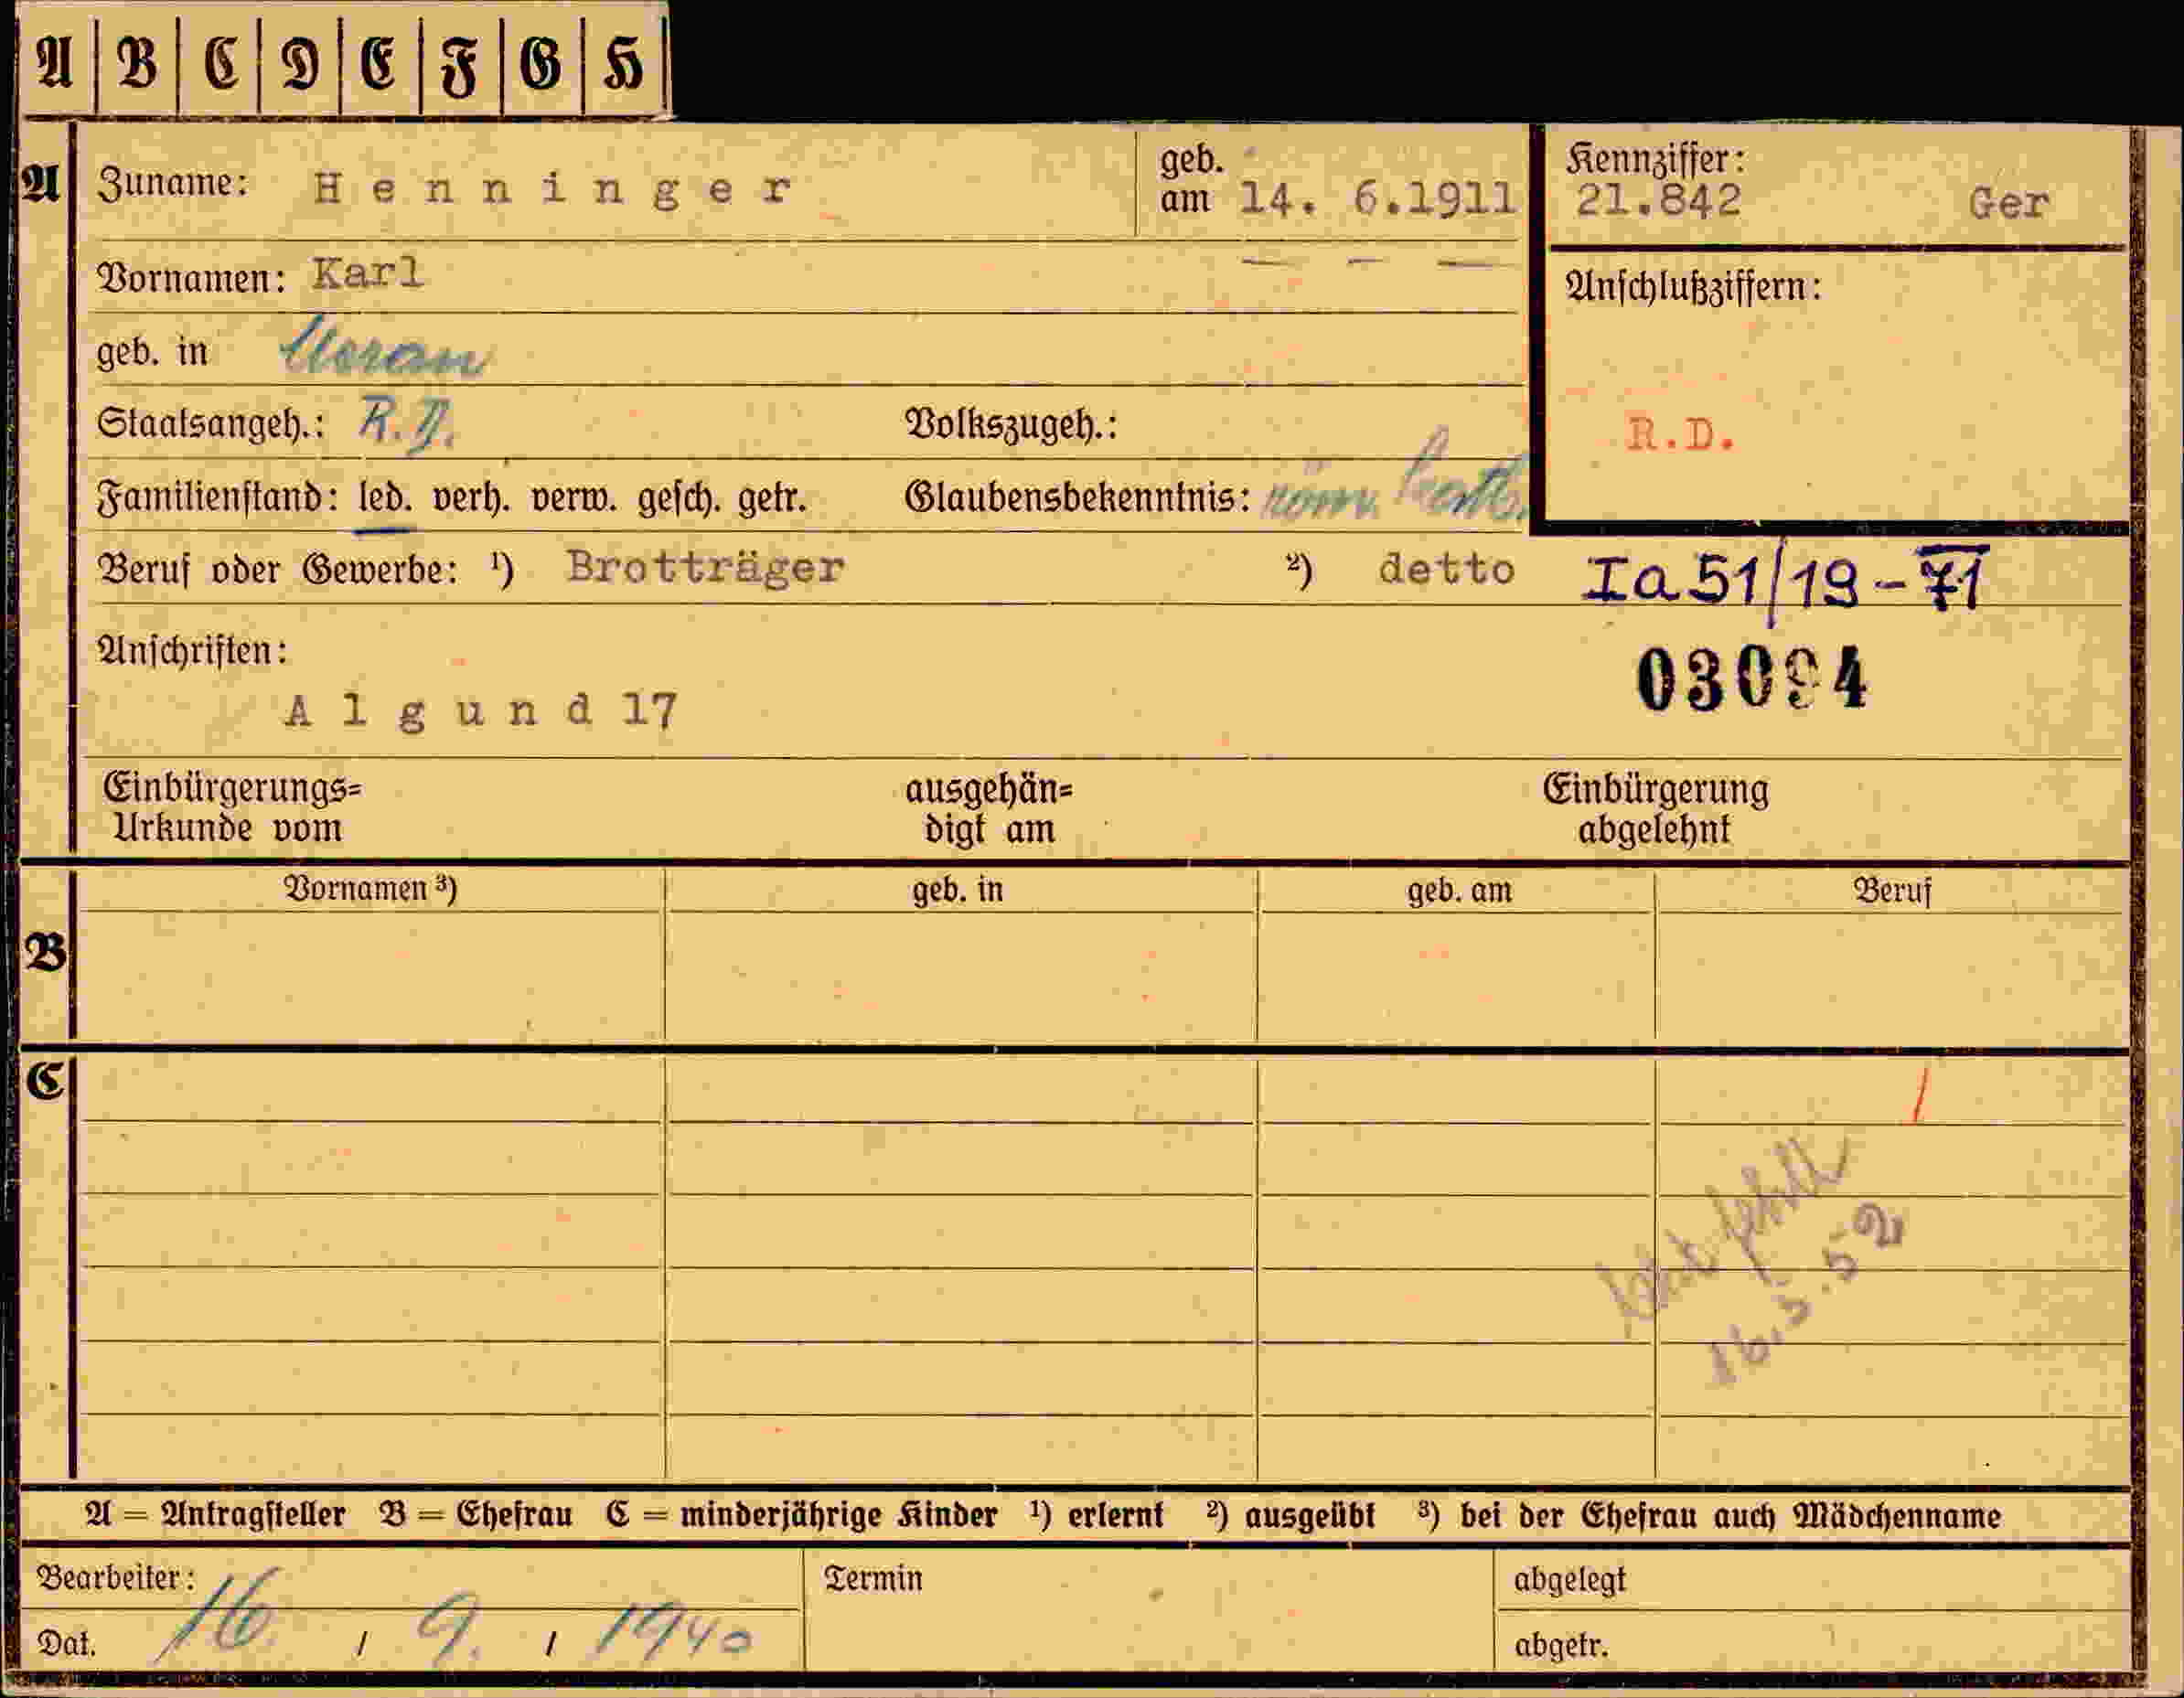 A B C D E F G H
A Zuname: Henninger geb. am 14. 6.1911 Kennziffer: 21.842 Ger
Vornamen: Karl Anschlußziffern:
geb. in Meran
Staatsangeh.: R.D. Volkszugeh.: R.D.
Familienstand: led. verh. verw. gesch. getr. Glaubensbekenntnis: röm. kath.
Beruf oder Gewerbe: ¹) Brotträger ²) detto Ia51/19-71
Anschriften: 03094
Algund 17
Einbürgerungs= ausgehän= Einbürgerung
Urkunde vom digt am abgelehnt
Vornamen ³) geb. in geb. am Beruf
B
C
fehlt
16.5.52
A = Antragsteller B = Ehefrau C = minderjährige Kinder ¹) erlernt ²) ausgeübt ³) bei der Ehefrau auch Mädchenname
Bearbeiter: Termin abgelegt
Dat. 16 / 9. / 1940 abgetr.